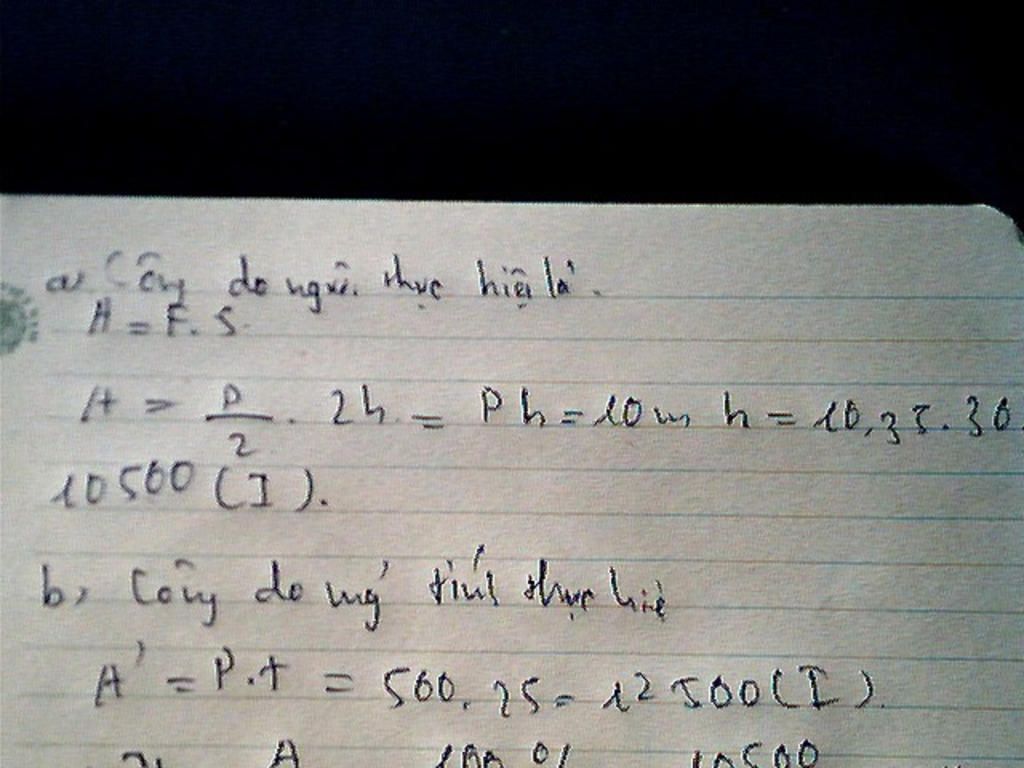 a, Công do người thực hiện là.
A = F. S.
A = P/2 . 2h = Ph = 10m h = 10.35.30
10500 (I).
b, Công do máy tính thực hiện
A' = P.t = 500. 25 = 12500 (I).
A 100 % 10500